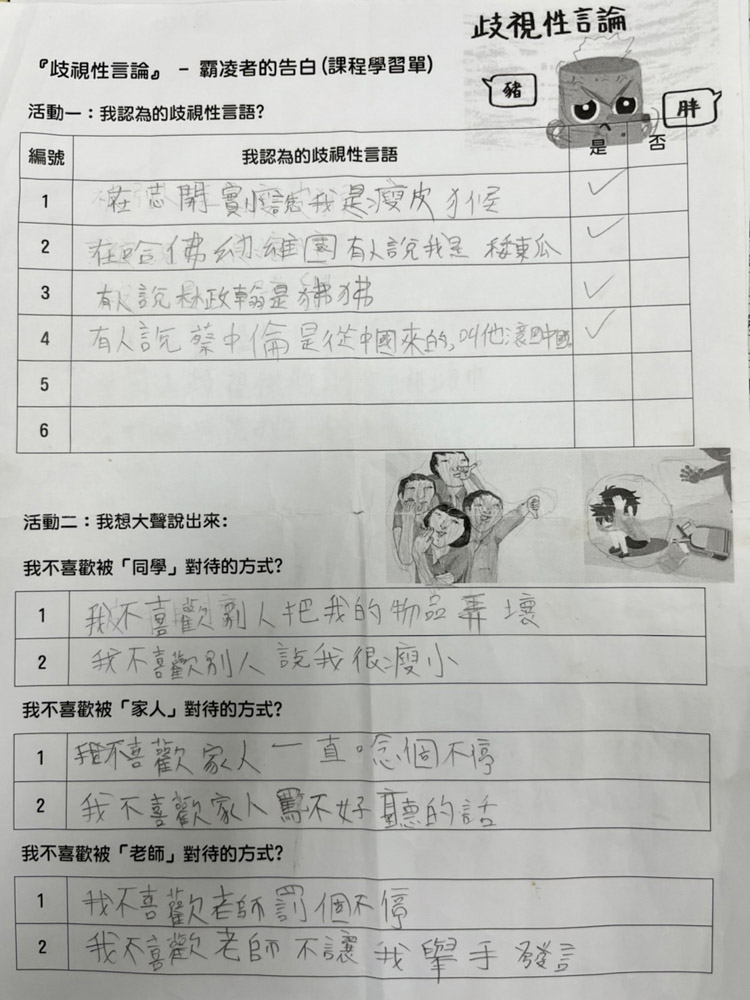 歧視性言論
『歧視性言論』 - 霸凌者的告白(課程學習單)
豬
胖
活動一：我認為的歧視性言語?
編號 我認為的歧視性言語 是 否
1 在志開實小說我是瘦皮犭候 ✓
2 在哈佛幼稚園有人說我是矮東瓜 ✓
3 有人說林政翰是狒狒 ✓
4 有人說蔡中倫是從中國來的,叫他滾回中國 ✓
5
6
活動二：我想大聲說出來:
我不喜歡被「同學」對待的方式?
1 我不喜歡別人把我的物品弄壞
2 我不喜歡別人說我很瘦小
我不喜歡被「家人」對待的方式?
1 我不喜歡家人一直唸個不停
2 我不喜歡家人罵不好聽的話
我不喜歡被「老師」對待的方式?
1 我不喜歡老師罰個不停
2 我不喜歡老師不讓我舉手發言